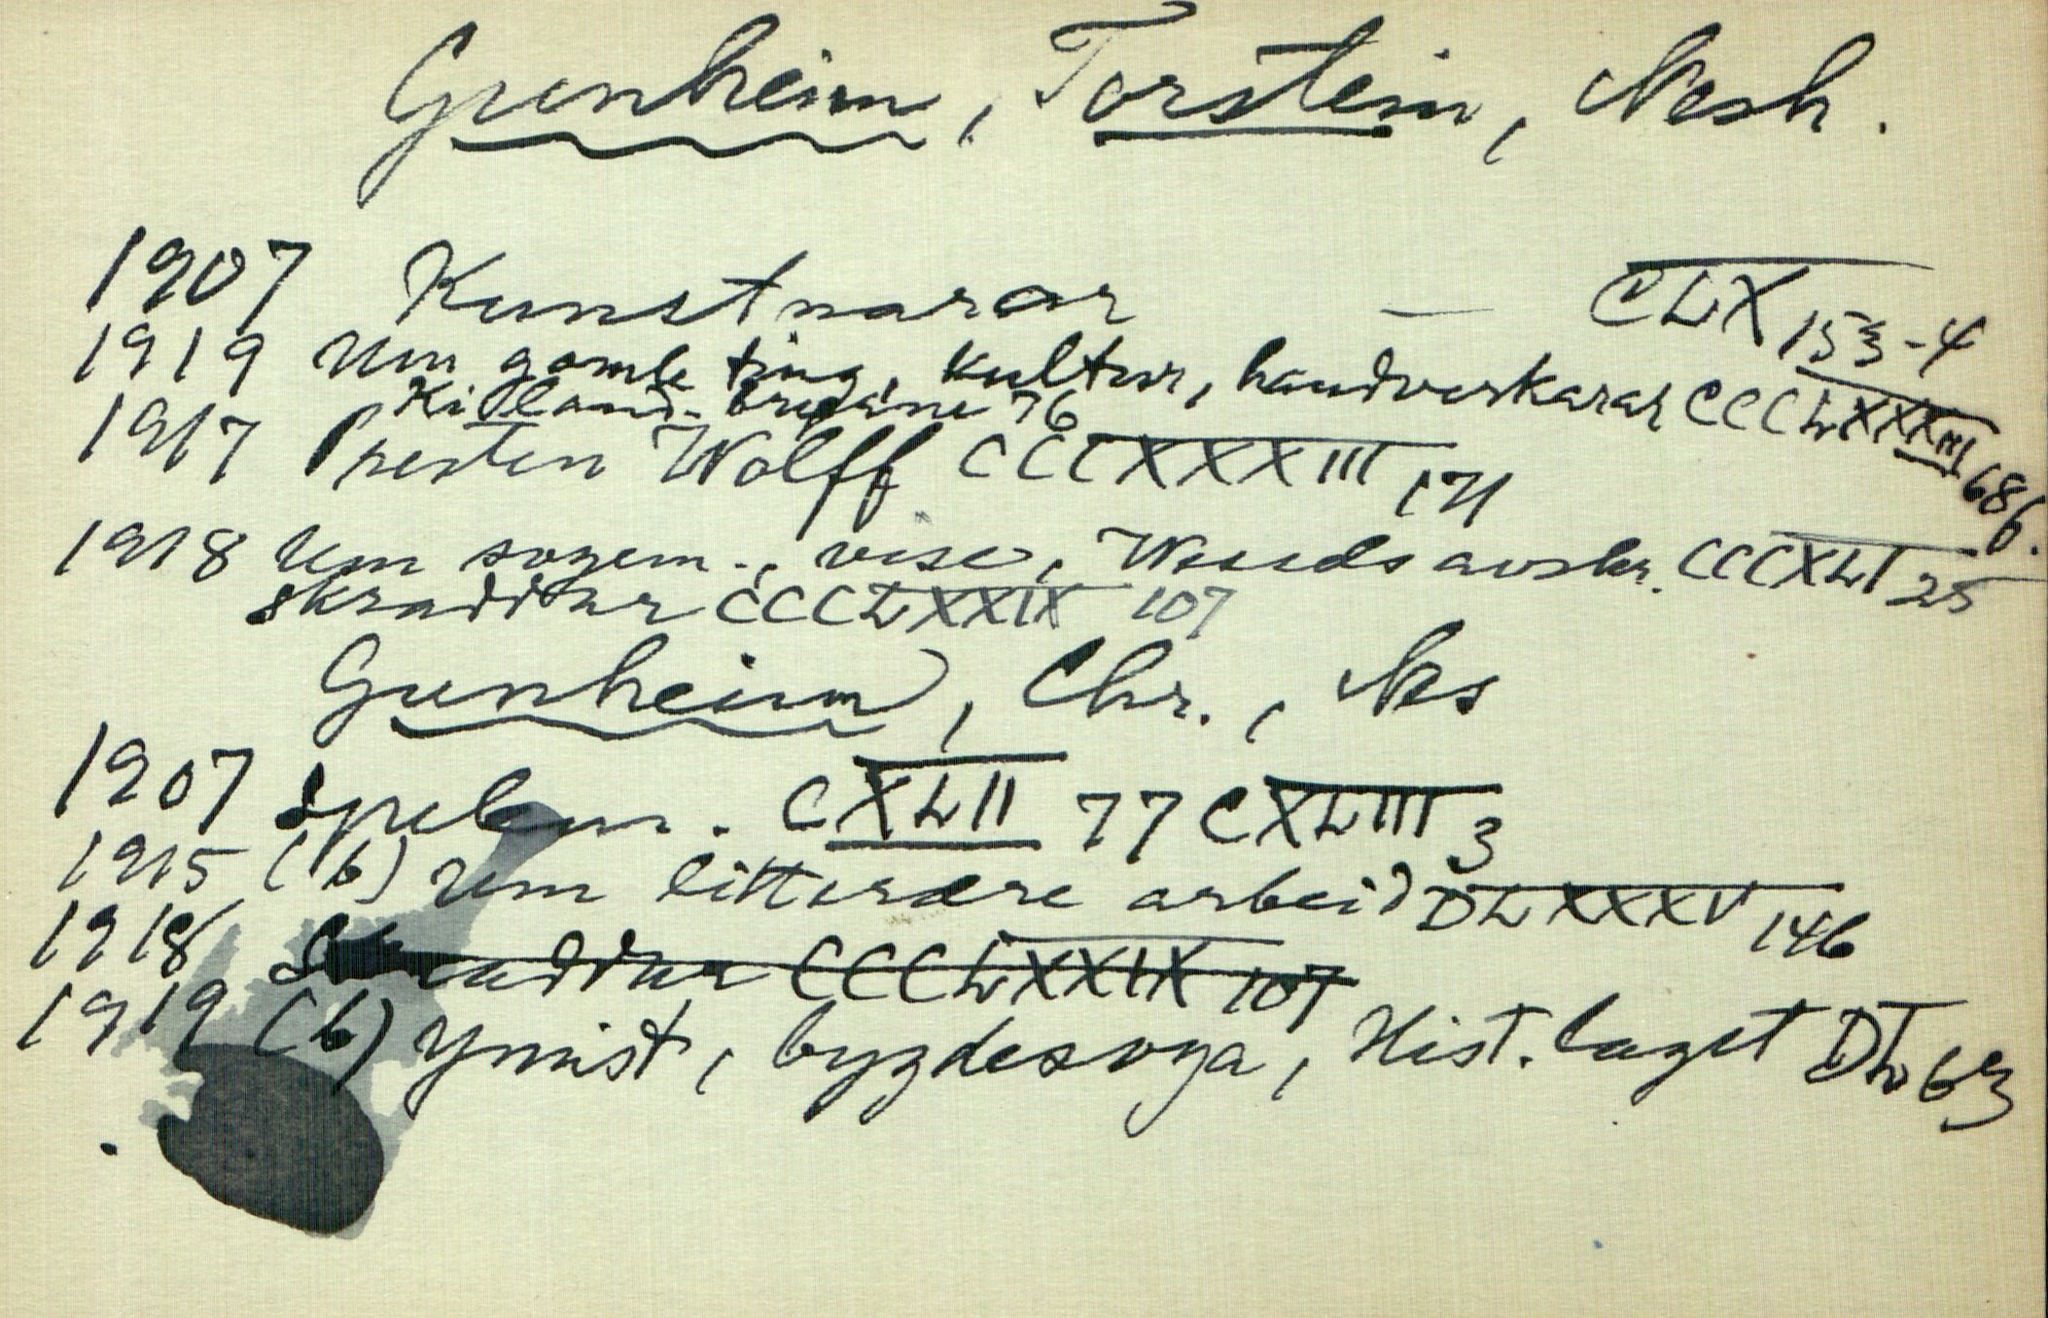 Gunheim, Torstein, Nesh.
1907 Kunstnarar — CLX 153-4
1919 Um gamle ting, kultur, handverkarar CCCLXXXIII 686.
Kitland-brevane 76
1917 Presten Wolff CCCXXXIII 171
1918 Um sogem., vise, Wauds avskr. CCCXLI 25
skraddar CCCLXXIX 107
Gunheim, Chr., Nes
1907 Spelem. CXLII 77 CXLIII 3
1915 (b) Um litterære arbeid DLXXXV 146
1918 Skraddar CCCLXXIX 107
1919 (b) Ymist, bygdesoga, Hist. laget DL 63